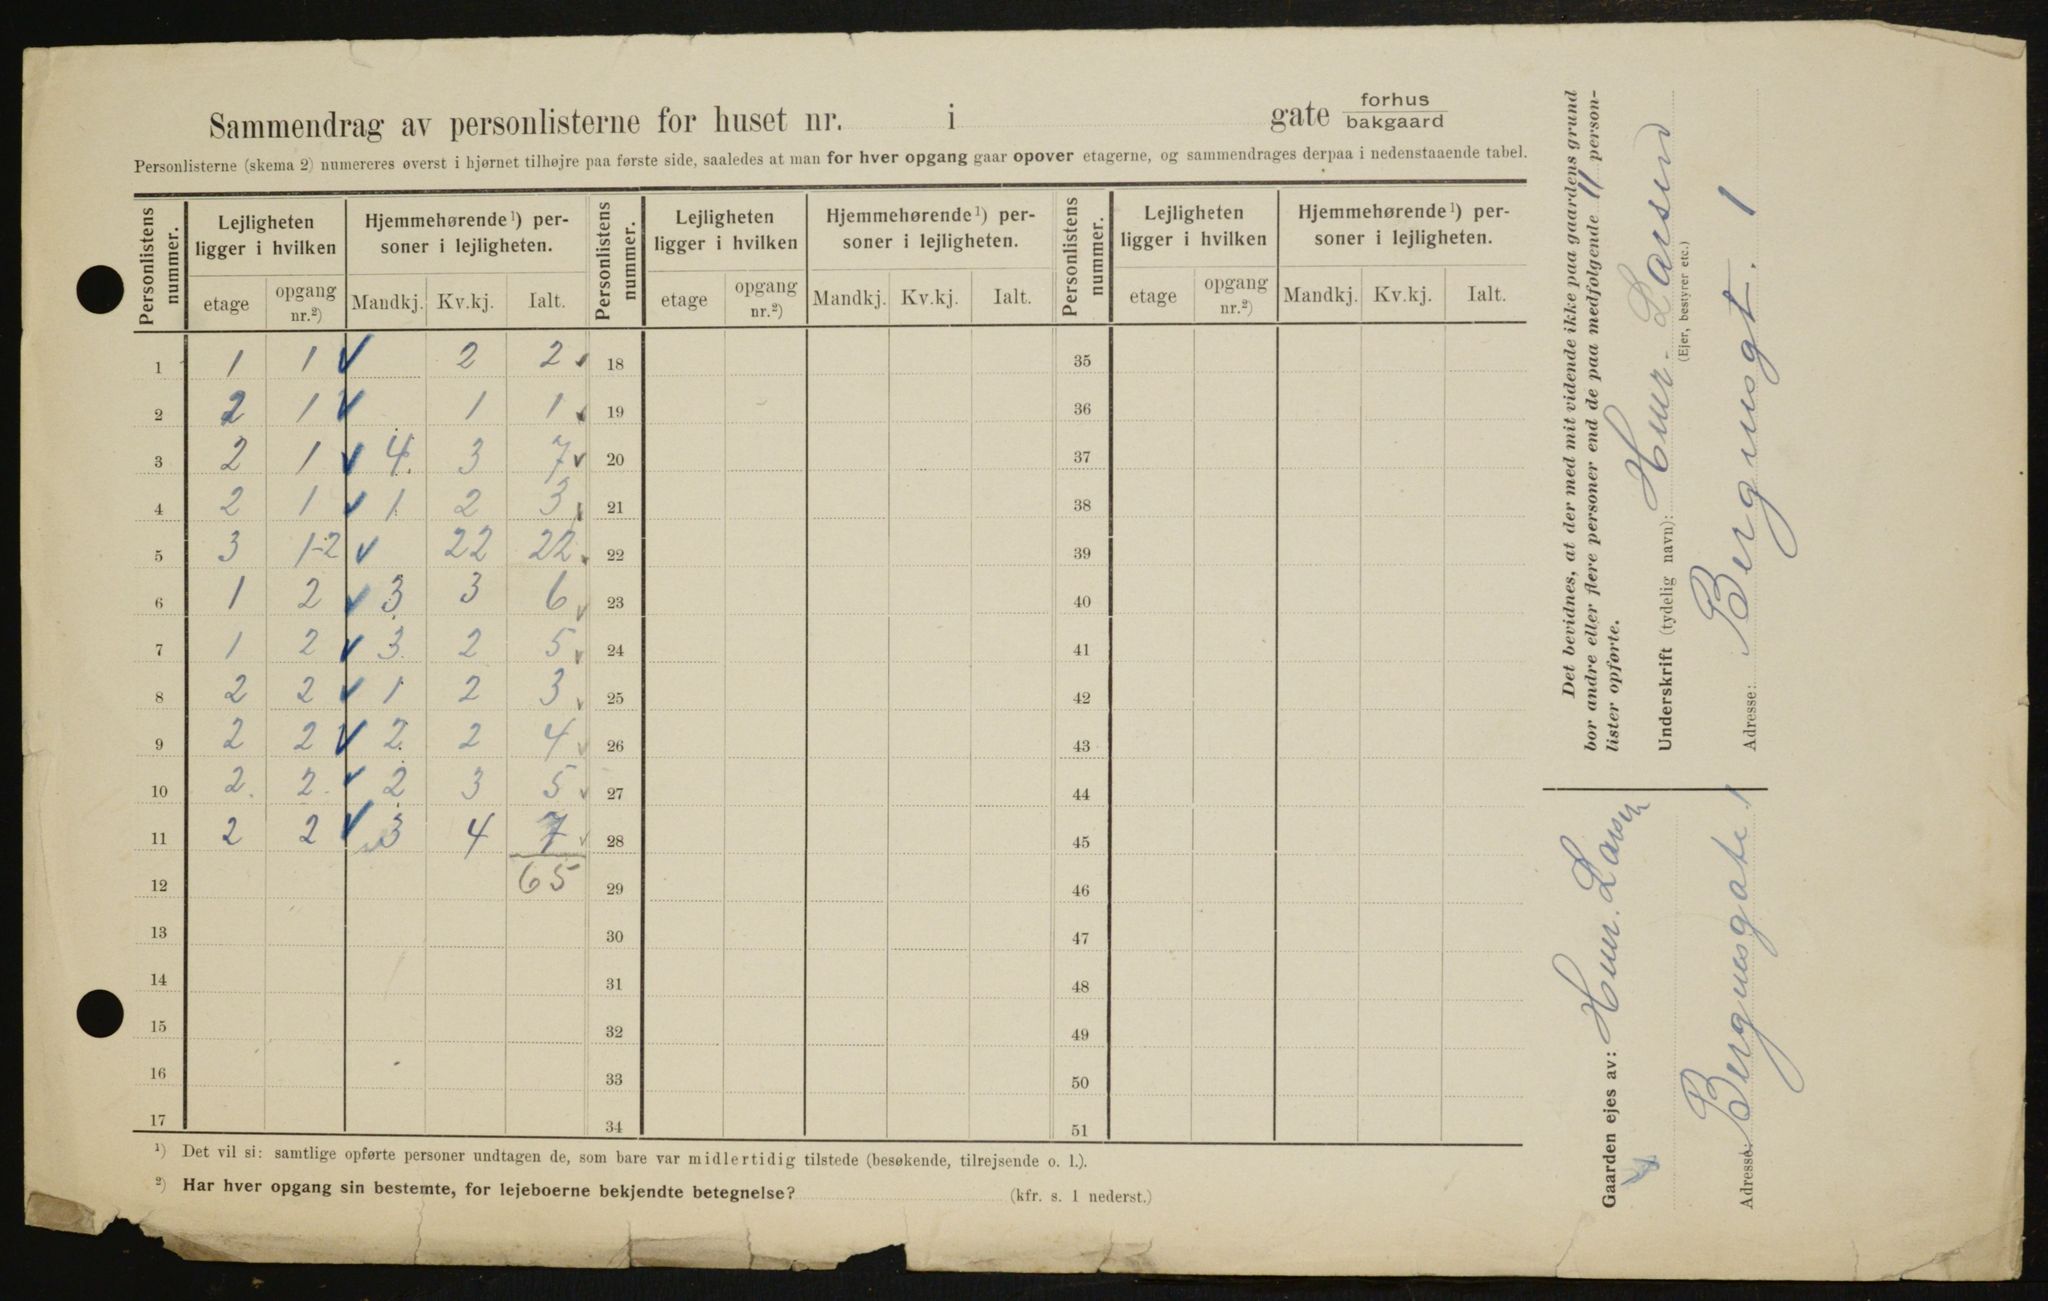 Sammendrag av personlisterne for huset nr. i gate forhus bakgaard
Personlisterne (skema 2) numereres øverst i hjørnet tilhøjre paa første side, saaledes at man for hver opgang gaar opover etagerne, og sammendrages derpaa i nedenstaaende tabel.
Personlistens nummer. Lejligheten ligger i hvilken Hjemmehørende ¹) personer i lejligheten. Personlistens nummer. Lejligheten ligger i hvilken Hjemmehørende ¹) personer i lejligheten. Personlistens nummer. Lejligheten ligger i hvilken Hjemmehørende ¹) personer i lejligheten.
etage opgang nr.²) Mandkj. Kv.kj. Ialt. etage opgang nr.²) Mandkj. Kv.kj. Ialt. etage opgang nr.²) Mandkj. Kv.kj. Ialt.
1 1 1 2 2 18 35
2 2 1 1 1 19 36
3 2 1 4 3 7 20 37
4 2 1 1 2 3 21 38
5 3 1-2 22 22 22 39
6 1 2 3 3 6 23 40
7 1 2 3 2 5 24 41
8 2 2 1 2 3 25 42
9 2 2 2 2 4 26 43
10 2 2 2 3 5 27 44
11 2 2 3 4 7 28 45
12 65 29 46
13 30 47
14 31 48
15 32 49
16 33 50
17 34 51
¹) Det vil si: samtlige opførte personer undtagen de, som bare var midlertidig tilstede (besøkende, tilrejsende o. l.).
²) Har hver opgang sin bestemte, for lejeboerne bekjendte betegnelse? (kfr. s. 1 nederst.)
Det bevidnes, at der med mit vidende ikke paa gaardens grund
bor andre eller flere personer end de paa medfølgende 11 person-
lister opførte.
Underskrift (tydelig navn): Larsen
(Ejer, bestyrer etc.)
Adresse: Bergusgt. 1
Gaarden ejes av: Larsen
Adresse: Bergusgate 1